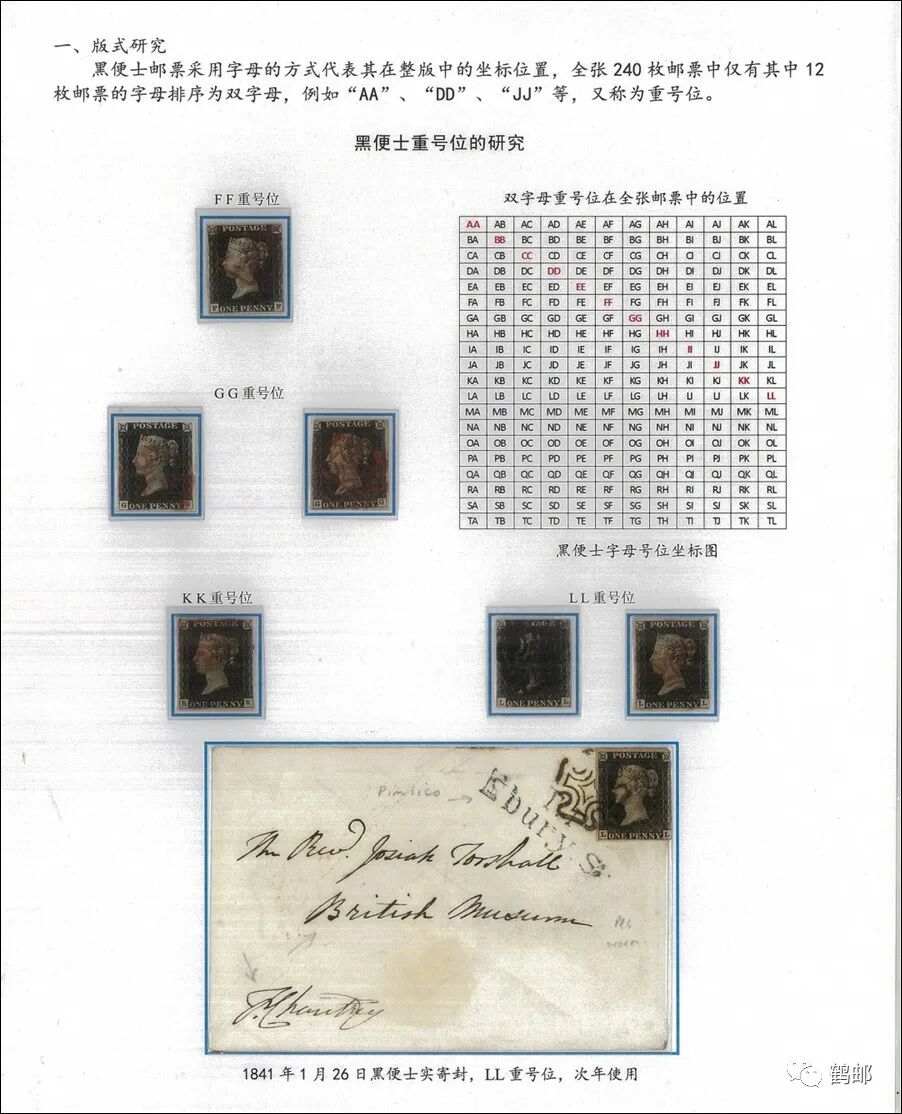 一、版式研究
黑便士邮票采用字母的方式代表其在整版中的坐标位置，全张240枚邮票中仅有其中12
枚邮票的字母排序为双字母，例如“AA”、“DD”、“JJ”等，又称为重号位。
黑便士重号位的研究
FF重号位
POSTAGE
F ONE PENNY F
GG重号位
POSTAGE
G ONE PENNY G
POSTAGE
G ONE PENNY G
双字母重号位在全张邮票中的位置
AA AB AC AD AE AF AG AH AI AJ AK AL
BA BB BC BD BE BF BG BH BI BJ BK BL
CA CB CC CD CE CF CG CH CI CJ CK CL
DA DB DC DD DE DF DG DH DI DJ DK DL
EA EB EC ED EE EF EG EH EI EJ EK EL
FA FB FC FD FE FF FG FH FI FJ FK FL
GA GB GC GD GE GF GG GH GI GJ GK GL
HA HB HC HD HE HF HG HH HI HJ HK HL
IA IB IC ID IE IF IG IH II IJ IK IL
JA JB JC JD JE JF JG JH JI JJ JK JL
KA KB KC KD KE KF KG KH KI KJ KK KL
LA LB LC LD LE LF LG LH LI LJ LK LL
MA MB MC MD ME MF MG MH MI MJ MK ML
NA NB NC ND NE NF NG NH NI NJ NK NL
OA OB OC OD OE OF OG OH OI OJ OK OL
PA PB PC PD PE PF PG PH PI PJ PK PL
QA QB QC QD QE QF QG QH QI QJ QK QL
RA RB RC RD RE RF RG RH RI RJ RK RL
SA SB SC SD SE SF SG SH SI SJ SK SL
TA TB TC TD TE TF TG TH TI TJ TK TL
黑便士字母号位坐标图
KK重号位
POSTAGE
K ONE PENNY K
LL重号位
L ONE PENNY L
POSTAGE
L ONE PENNY L
POSTAGE
L ONE PENNY L
Pimlico
Ebury St
The Revd. Josiah Forshall
British Museum
F. Chantrey
1841年1月26日黑便士实寄封，LL重号位，次年使用
鹤邮